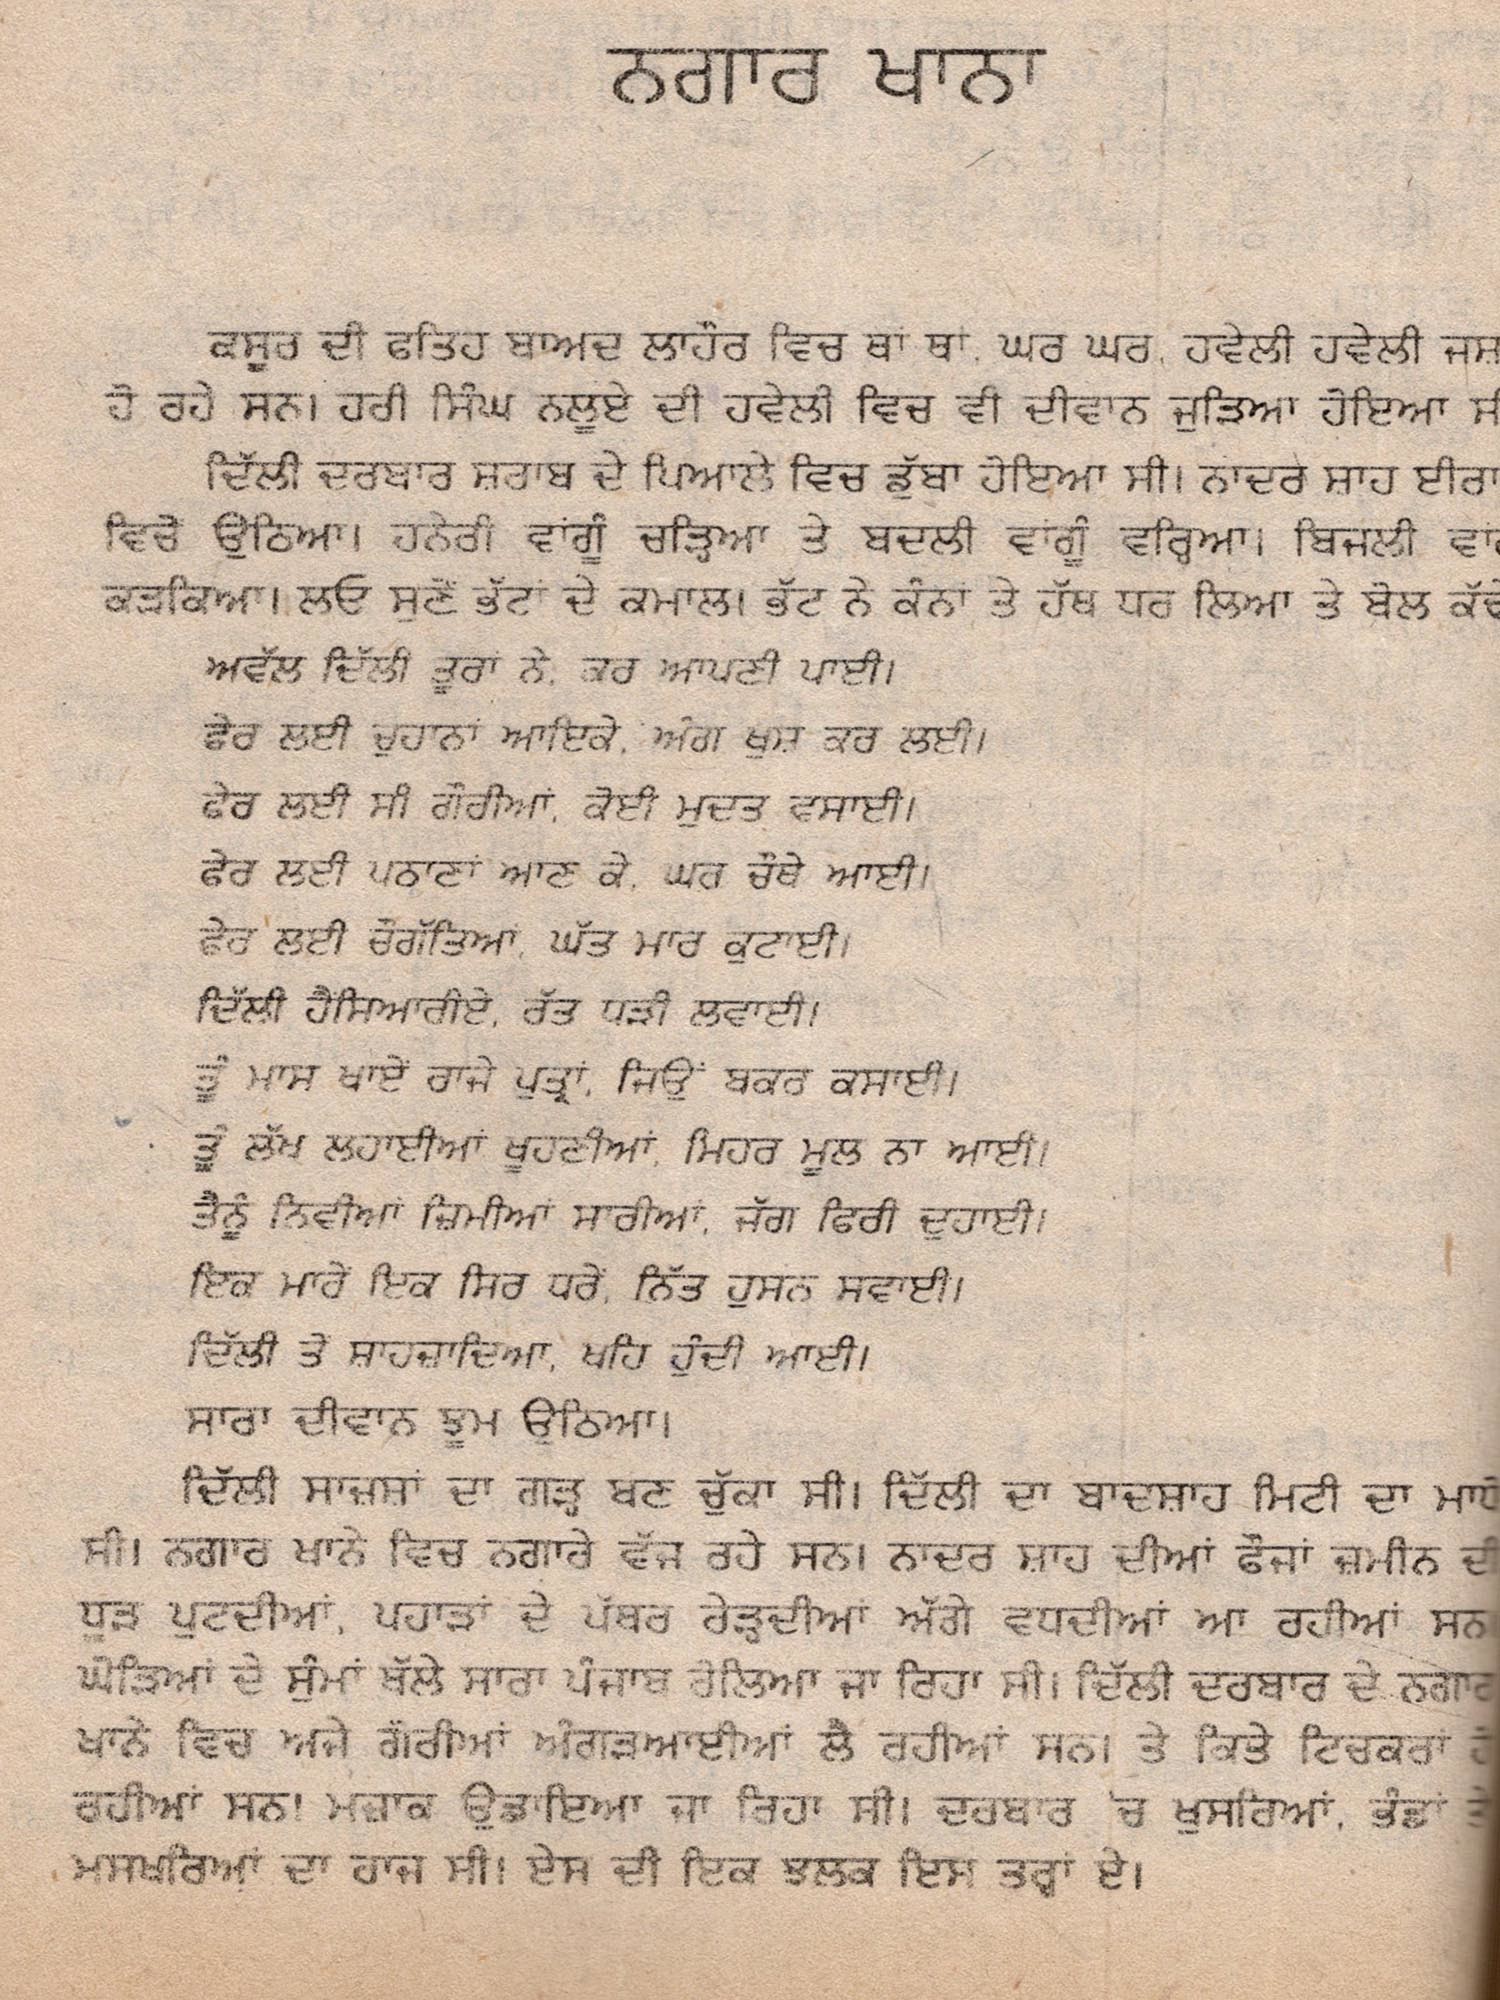 ਨਗਾਰ ਖਾਨਾ
ਕਸੂਰ ਦੀ ਫਤਿਹ ਬਾਅਦ ਲਾਹੌਰ ਵਿਚ ਥਾਂ ਥਾਂ, ਘਰ ਘਰ, ਹਵੇਲੀ ਹਵੇਲੀ
ਹੋ ਰਹੇ ਸਨ। ਹਰੀ ਸਿੰਘ ਨਲੂਏ ਦੀ ਹਵੇਲੀ ਵਿਚ ਵੀ ਦੀਵਾਨ ਜੁੜਿਆ ਹੋਇਆ ਸੀ
ਦਿੱਲੀ ਦਰਬਾਰ ਸ਼ਰਾਬ ਦੇ ਪਿਆਲੇ ਵਿਚ ਡੁੱਬਾ ਹੋਇਆ ਸੀ। ਨਾਦਰ ਸ਼ਾਹ
ਵਿਚੋਂ ਉਠਿਆ। ਹਨੇਰੀ ਵਾਂਗੂੰ ਚੜ੍ਹਿਆ ਤੇ ਬਦਲੀ ਵਾਂਗੂੰ ਵਰ੍ਹਿਆ। ਬਿਜਲੀ
ਕੜਕਿਆ। ਲਓ ਸੁਣੋਂ ਭੱਟਾਂ ਦੇ ਕਮਾਲ। ਭੱਟ ਨੇ ਕੰਨਾਂ ਤੇ ਹੱਥ ਧਰ ਲਿਆ ਤੇ ਬੋਲ ਕੱਢੇ
ਅਵੱਲ ਦਿੱਲੀ ਤੂਰਾਂ ਨੇ, ਕਰ ਆਪਣੀ ਪਾਈ।
ਫੇਰ ਲਈ ਚੁਹਾਨਾਂ ਆਇਕੇ, ਅੰਗ ਖੁਸ਼ ਕਰ ਲਈ।
ਫੇਰ ਲਈ ਸੀ ਗੌਰੀਆਂ, ਕੋਈ ਮੁਦਤ ਵਸਾਈ।
ਫੇਰ ਲਈ ਪਠਾਣਾਂ ਆਣ ਕੇ, ਘਰ ਚੌਥੇ ਆਈ।
ਫੇਰ ਲਈ ਚੌਗੱਤਿਆਂ, ਘੱਤ ਮਾਰ ਕੁਟਾਈ।
ਦਿੱਲੀ ਹੈਂਸਿਆਰੀਏ, ਰੱਤ ਧੜੀ ਲਵਾਈ।
ਤੂੰ ਮਾਸ ਖਾਏਂ ਰਾਜੇ ਪੁਤ੍ਰਾਂ, ਜਿਉਂ ਬਕਰ ਕਸਾਈ।
ਤੂੰ ਲੱਖ ਲਹਾਈਆਂ ਖੂਹਣੀਆਂ, ਮਿਹਰ ਮੂਲ ਨਾ ਆਈ।
ਤੈਨੂੰ ਨਿਵੀਆਂ ਜ਼ਿਮੀਆਂ ਸਾਰੀਆਂ, ਜੱਗ ਫਿਰੀ ਦੁਹਾਈ।
ਇਕ ਮਾਰੇਂ ਇਕ ਸਿਰ ਧਰੇਂ, ਨਿੱਤ ਹੁਸਨ ਸਵਾਈ।
ਦਿੱਲੀ ਤੇ ਸ਼ਾਹਜ਼ਾਦਿਆ, ਖਹਿ ਹੁੰਦੀ ਆਈ।
ਸਾਰਾ ਦੀਵਾਨ ਝੂਮ ਉਠਿਆ।
ਦਿੱਲੀ ਸਾਜ਼ਸ਼ਾਂ ਦਾ ਗੜ੍ਹ ਬਣ ਚੁੱਕਾ ਸੀ। ਦਿੱਲੀ ਦਾ ਬਾਦਸ਼ਾਹ ਮਿਟੀ ਦਾ ਮਾਧੋ
ਸੀ। ਨਗਾਰ ਖਾਨੇ ਵਿਚ ਨਗਾਰੇ ਵੱਜ ਰਹੇ ਸਨ। ਨਾਦਰ ਸ਼ਾਹ ਦੀਆਂ ਫੌਜਾਂ ਜ਼ਮੀਨ ਦੀ
ਧੂੜ ਪੁਟਦੀਆਂ, ਪਹਾੜਾਂ ਦੇ ਪੱਥਰ ਰੇੜ੍ਹਦੀਆਂ ਅੱਗੇ ਵਧਦੀਆਂ ਆ ਰਹੀਆਂ ਸਨ
ਘੋੜਿਆਂ ਦੇ ਸੁੰਮਾਂ ਥੱਲੇ ਸਾਰਾ ਪੰਜਾਬ ਰੋਲਿਆ ਜਾ ਰਿਹਾ ਸੀ। ਦਿੱਲੀ ਦਰਬਾਰ ਦੇ ਨਗਾਰ
ਖਾਨੇ ਵਿਚ ਅਜੇ ਗੌਰੀਆਂ ਅੰਗੜਆਈਆਂ ਲੈ ਰਹੀਆਂ ਸਨ। ਤੇ ਕਿਤੇ ਟਿਚਕਰਾਂ ਹੋ
ਰਹੀਆਂ ਸਨ! ਮਜ਼ਾਕ ਉਡਾਇਆ ਜਾ ਰਿਹਾ ਸੀ। ਦਰਬਾਰ 'ਚ ਖੁਸਰਿਆਂ, ਭੰਡਾਂ ਤੇ
ਮਸਖਰਿਆਂ ਦਾ ਹਾਜ ਸੀ! ਏਸ ਦੀ ਇਕ ਝਲਕ ਇਸ ਤਰ੍ਹਾਂ ਏ।